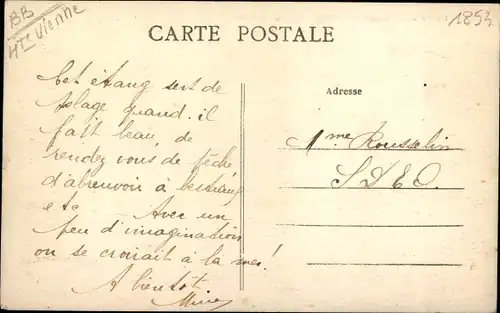 BB
Hte Vienne
1854
CARTE POSTALE
Adresse
Cet étang sert de
plage quand il
fait beau, de
rendez vous de pêche,
d'abreuvoir à bestiaux
etc _ Avec un
peu d'imagination
on se croirait à la mer!
A bientôt
Mme Rousselin
S D E C.